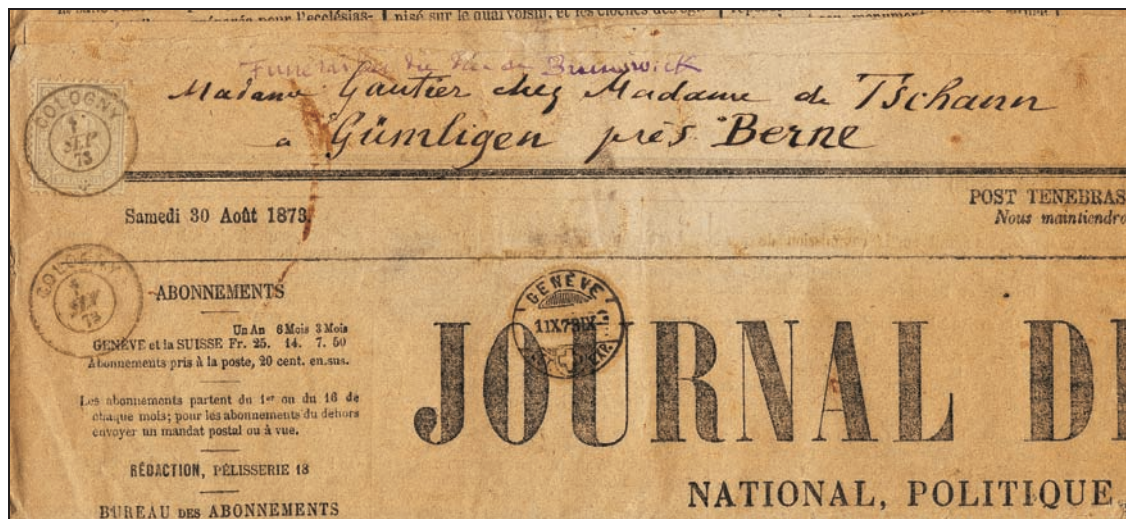 préparés pour l'ecclésias- nisé sur le quai voisin, et les cloches des
Funérailles du Duc de Brunswick
Madame Gautier chez Madame de Tschann
a Gümligen près Berne
COLOGNY
SEP
73
Samedi 30 Août 1873.
POST TENEBRAS
Nous maintiendro
COLOGNY
SEP
73
GENÈVE
1 IX 73 IX
ABONNEMENTS
Un An 6 Mois 3 Mois
GENÈVE et la SUISSE Fr. 25. 14. 7. 50
Abonnements pris à la poste, 20 cent. en sus.
Les abonnements partent du 1er ou du 16 de
chaque mois; pour les abonnements du dehors
envoyer un mandat postal ou à vue.
RÉDACTION, PÉLISSERIE 18
BUREAU DES ABONNEMENTS
JOURNAL DE
NATIONAL, POLITIQUE